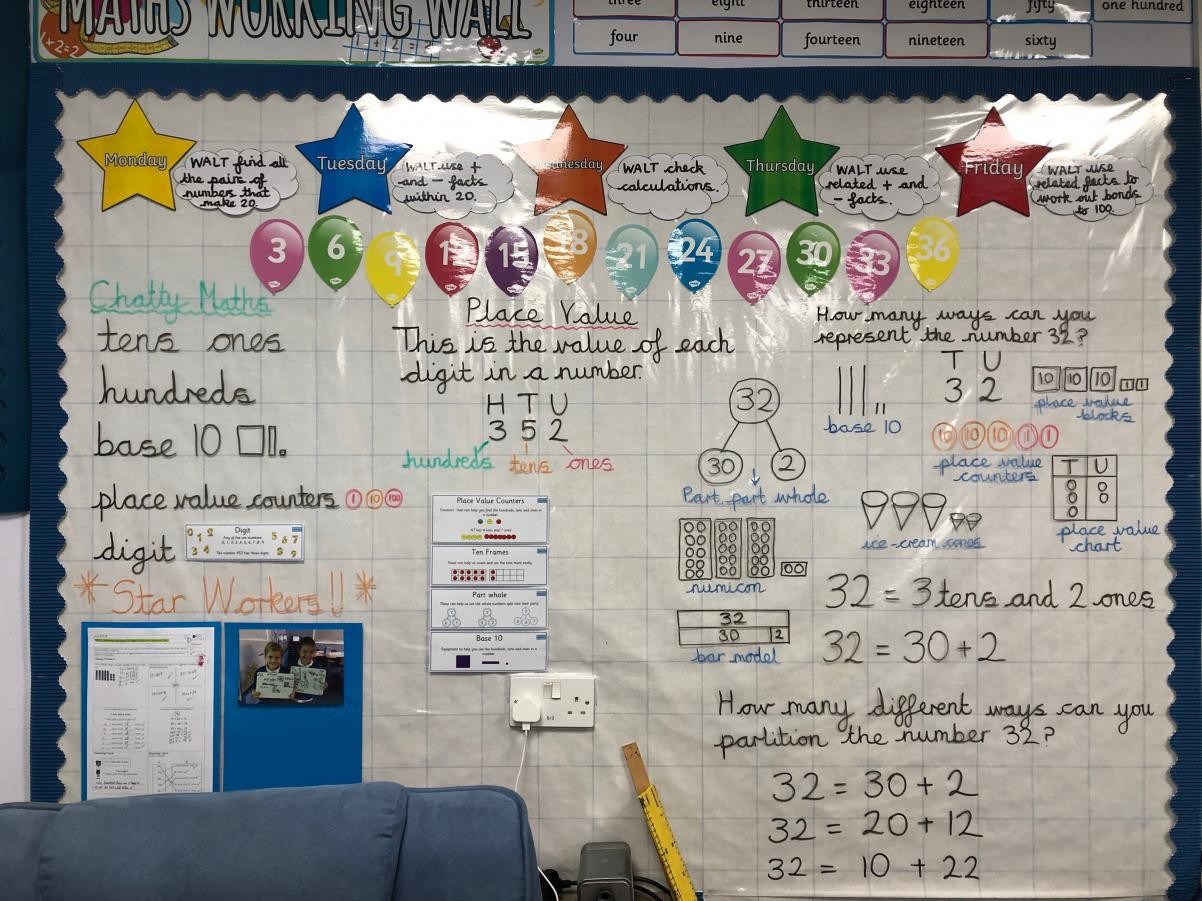 MATHS WORKING WALL
1+2=2
three eight thirteen eighteen fifty one hundred
four nine fourteen nineteen sixty
Monday
WALT find all
the pairs of
numbers that
make 20.
Tuesday
WALT use +
and - facts
within 20.
Wednesday
WALT check
calculations.
Thursday
WALT use
related + and
- facts.
Friday
WALT use
related facts to
work out bonds
to 100.
3 6 9 12 15 18 21 24 27 30 33 36
Chatty Maths
tens ones
hundreds
base 10
place value counters 1 10 100
digit
Digit
Any of the ten numbers
0, 1, 2, 3, 4, 5, 6, 7, 8, 9
The number 452 has three digits.
*Star Workers!!*
Place Value
This is the value of each
digit in a number.
H T U
3 5 2
hundreds tens ones
Place Value Counters
Counters that can help you find the hundreds, tens and ones in
a number
47 has 4 tens and 7 ones
Ten Frames
These can help us count and see the tens more easily.
Part whole
These can help us see the whole numbers split into their parts.
Base 10
Equipment to help you see the hundreds, tens and ones in
a number.
32
30 2
Part part whole
numicon
32
30 2
bar model
How many ways can you
represent the number 32?
base 10
T U
3 2
10 10 10 1 1
place value
blocks
10 10 10 1 1
place value
counters
ice-cream cones
T U
place value
chart
32 = 3 tens and 2 ones
32 = 30 + 2
How many different ways can you
partition the number 32?
32 = 30 + 2
32 = 20 + 12
32 = 10 + 22